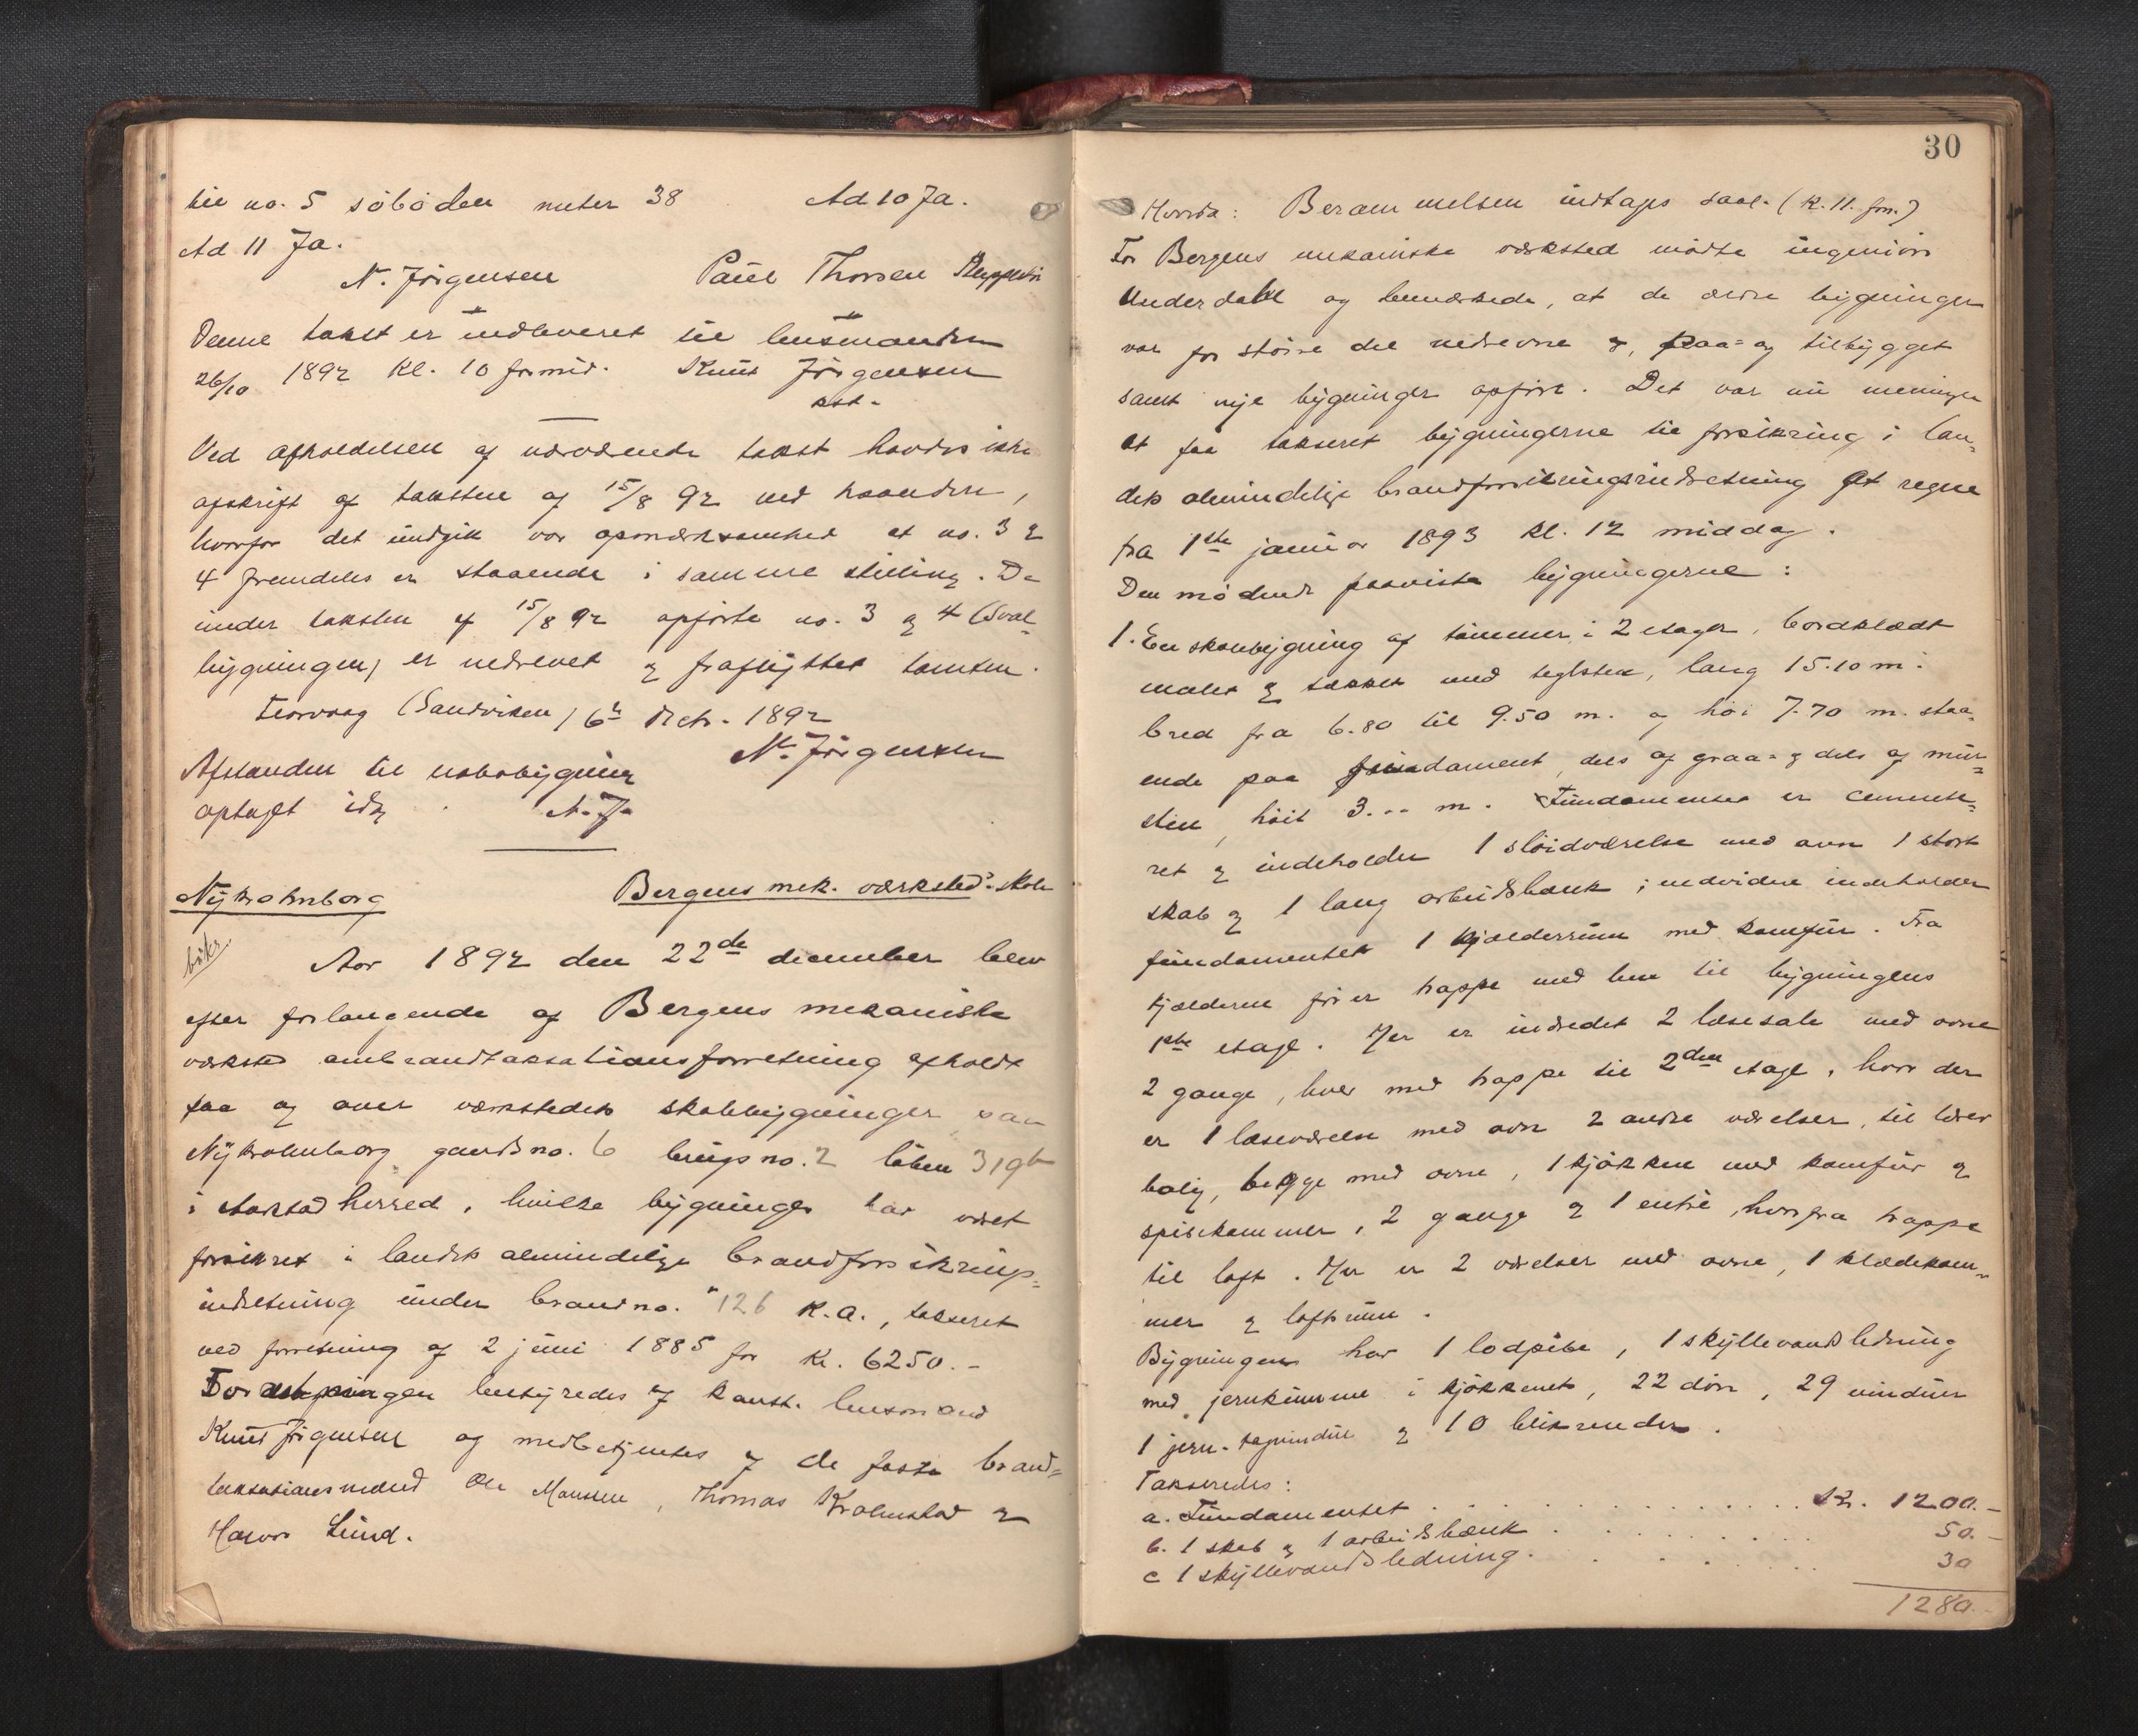 til no. 5 söboden meter 38 Ad 10 Ja.
Ad 11 Ja.
N. Jörgensen Paul Thorsen
Denne takst er indleveret til lensmanden
26/10 1892 kl. 10 formid. Knut Jörgensen
kst.
Ved afholdelsen af nærværende takst havdes ikke
afskrift af taksten af 15/8 92 ved haanden,
hvorfor det undgik vor opmærksomhed at no. 3 &
4 fremdeles er staaende i samme stilling. De
under taksten af 15/8 92 opförte no. 3 & 4 (Sval-
bygningen) er nedrevet & fraflyttet tomten.
(Sandviken) 6te 1892
N. Jörgensen
Afstanden til nabobygning
optaget idag. N. J.
Nyholmborg Bergens mek. værksted's skole
Aar 1892 den 22de december blev
efter forlangende af Bergens mekaniske
værksted ombrandtaksationsforretning afholdt
paa og over værkstedets skolebygninger paa
gaardsno. 6 brugsno. 2 löbenr 319b
i Aarstad herred, hvilke bygninger har været
forsikret i landets almindelige brandforsikrings-
indretning under brandno. 126 K.a., takseret
ved forretning af 2 juni 1885 for kr. 6250.-
Forretningen bestyredes af konst. lensmand
Knut Jörgensen og medbetjentes af de faste brand-
taksationsmænd Ole Monsen, Thomas &
Lund.
30
Hvorda: Berammelsen indtages saal. (k. 11. fm.)
For Bergens mekaniske værksted mödte ingeniör
Underdahl og bemærkede, at de ældre bygninger
var for större del nedrevne &, paa- og tilbygget
samt nye bygninger opfört. Det var nu meningen
at faa takseret bygningerne til forsikring i lan-
dets almindelige brandforsikringsindretning at regne
fra 1ste januar 1893 kl. 12 middag.
Den mödende paaviste bygningerne:
1. En skolebygning af tömmer i 2 etager, bordklædt
malet & tækket med teglsten, lang 15.10 m.
bred fra 6.80 til 9.50 m. og höi 7.70 m. staa-
ende paa fundament, dels af graa- & dels af mur-
sten, höit 3... m. Fundamentet er cemente-
ret & indeholder 1 slöidværelse med ovn 1 stort
skab & 1 lang arbeidsbænk; endvidere indeholder
fundamentet 1 kjælderrum med komfur. Fra
kjælderne förer trappe med lem til bygningens
1ste etage. Her er indredet 2 læsesale med ovne
2 gange, hver med trappe til 2den etage, hvor der
er 1 læseværelse med ovn 2 andre værelser, til lærer
bolig, begge med ovne, 1 kjökken med komfur &
spisekammer, 2 gange & 1 entré, hvorfra trappe
til loft. Her er 2 værelser med ovne, 1 klædekam-
mer & loftsrum.
Bygningen har 1 lodpibe, 1 skyllevandsledning
med jernkumme i kjökkenet, 22 döre, 29 vinduer
1 jern-tagvindue & 10 blikrender.
Takseredes:
a. Fundamentet . . . . . . . Kr. 1200.-
b. 1 skab & 1 arbeidsbænk . . . . . 50.-
c 1 skyllevandsledning. . . . . 30
1280.-